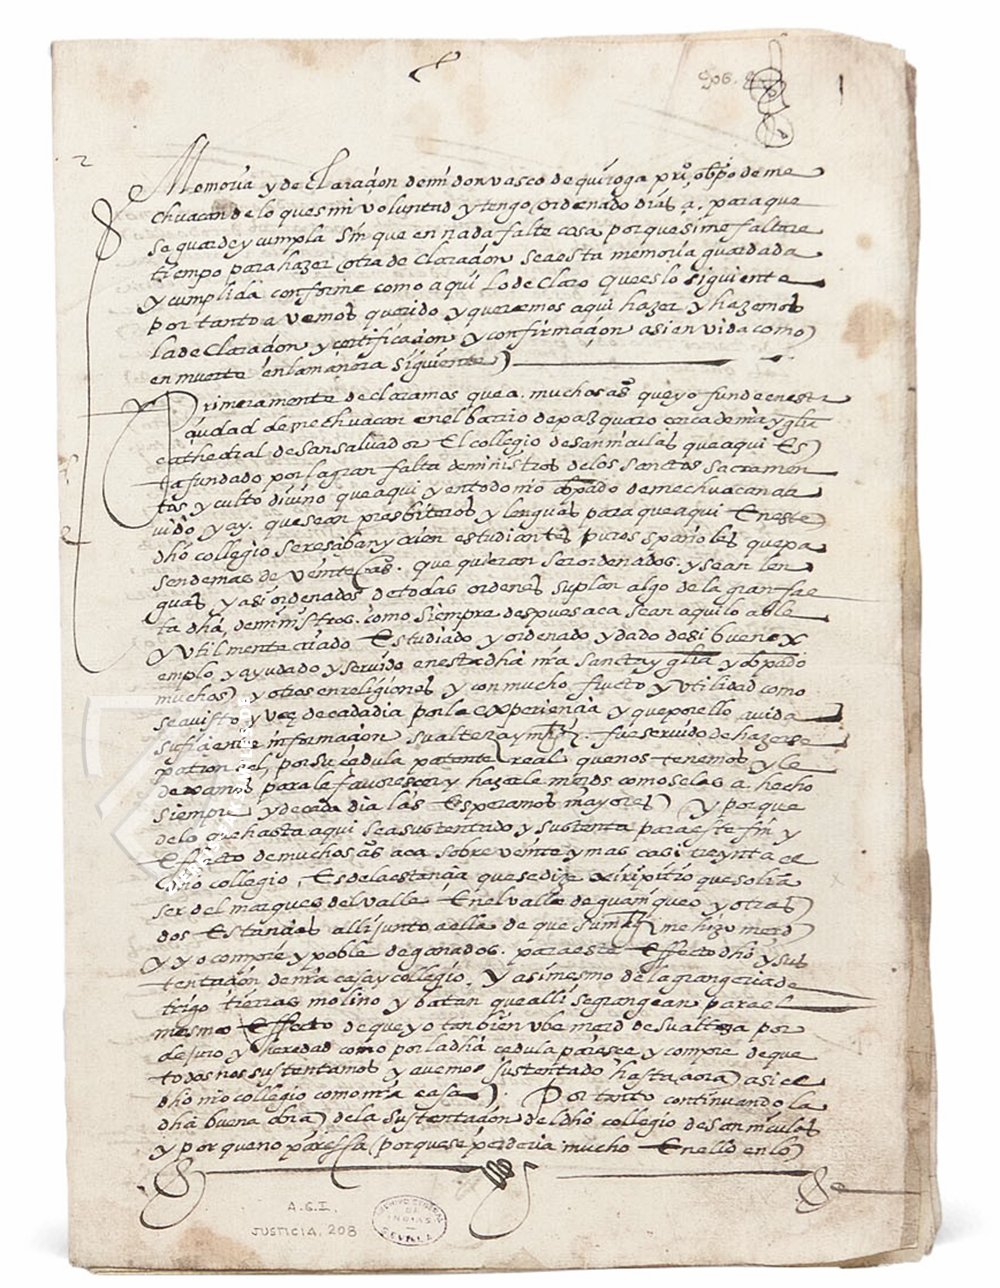 1
2
Memoria y declaraçion de mi don vasco de quiroga pri.º obpo de me
chuacan de lo ques mi voluntad y tengo ordenado dias a. para que
se guarde y cumpla sin que en nada falte cosa porque si me faltare
tiempo para hazer otra declaraçion sea esta memoria guardada
y cumplida conforme como aqui lo declaro que es lo siguiente
por tanto avemos querido y queremos aqui hazer y hazemos
la declaraçion y certificaçion y confirmaçion asi en vida como
en muerte en la manera siguiente
Primeramente declaramos que a. muchos as que yo funde en esta
çiudad de mechuacan en el barrio de pazquaro cerca de mia yglia
cathedral de san salvador El collegio de san niculas que aqui Es
ta fundado por la gran falta de ministros de los sanctos sacramen
tos y culto divino que aqui y en todo nro obpado de mechuacan a a
vido y ay. que sean presbiteros y lenguas para que aqui En este
dho collegio se resçiban y crien estudiantes puros españoles que pa
sen de mas de veinte as. que quieran ser ordenados. y sean len
guas, y asi ordenados de todas ordenes suplan algo de la gran fal
ta dha, de ministros. como siempre despues aca sean aqui loable
y utilmente criado Estudiado y ordenado y dado de si buen ex
emplo, y ayudado y servido en esta dha nra sancta yglia y obpado
muchos y otros en religiones y con mucho fructo y utilidad como
se a visto y vee de cada dia por la experiencia y que por ello avida
sufiçiente informaçion su alteza y mgt. fue servido de hazerse
patron del, por su cedula patente real que nos tenemos y le
dexamos para le favoresçer y hazerle mrds como se las a. hecho
siempre y de cada dia las Esperamos mayores y porque
de lo que hasta aqui se a sustentado y sustenta para este fin y
Effecto de muchos as aca sobre veinte y mas casi treynta el
dho collegio, Es de la estançia que se dize xiripitio que solia
ser del marques del valle En el valle de guaniqueo y otras
dos Estançias alli junto a ella de que su mgt me hizo mrd
y yo compre y poble de ganados. para este Effecto dho y sus
tentaçion de nra casa y collegio, y asimesmo de la grangeria de
trigo tierras molino y batan que alli se grangean para el
mesmo Effecto de que yo tambien ube mrd de su alteza por
de juro y heredad como por la dha cedula paresce y compre de que
todos nos sustentamos y avemos sustentado hasta aora asi el
dho nro collegio como nra casa. Por tanto continuando la
dha buena obra de la sustentaçion del dho collegio de san niculas
y porque no paresca (porque se perderia mucho En ello en lo
A.G.I.
JUSTICIA, 208
ARCHIVO GENERAL
DE
INDIAS
SEVILLA